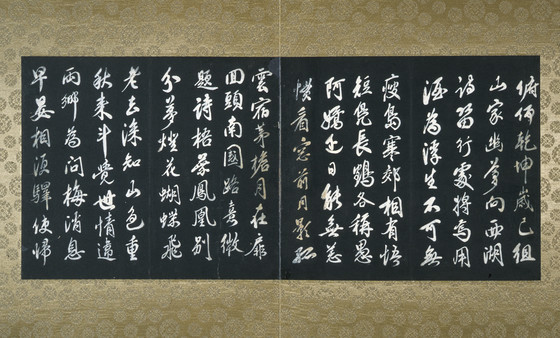 俯仰乾坤歲已徂
山家幽夢向西湖
詩當行處將焉用
酒為浮生不可無
瘦島寒郊相有悟
短鳧長鶴各稱愚
阿嬌近日能無恙
看窓前月影孤
雲宿茅檐月在扉
回頭南國路熹微
題詩格鳳凰別
分燈花蝴蝶飛
老去深知山色重
秋來斗覺世情違
兩鄉為問梅消息
早晏相須驛使歸